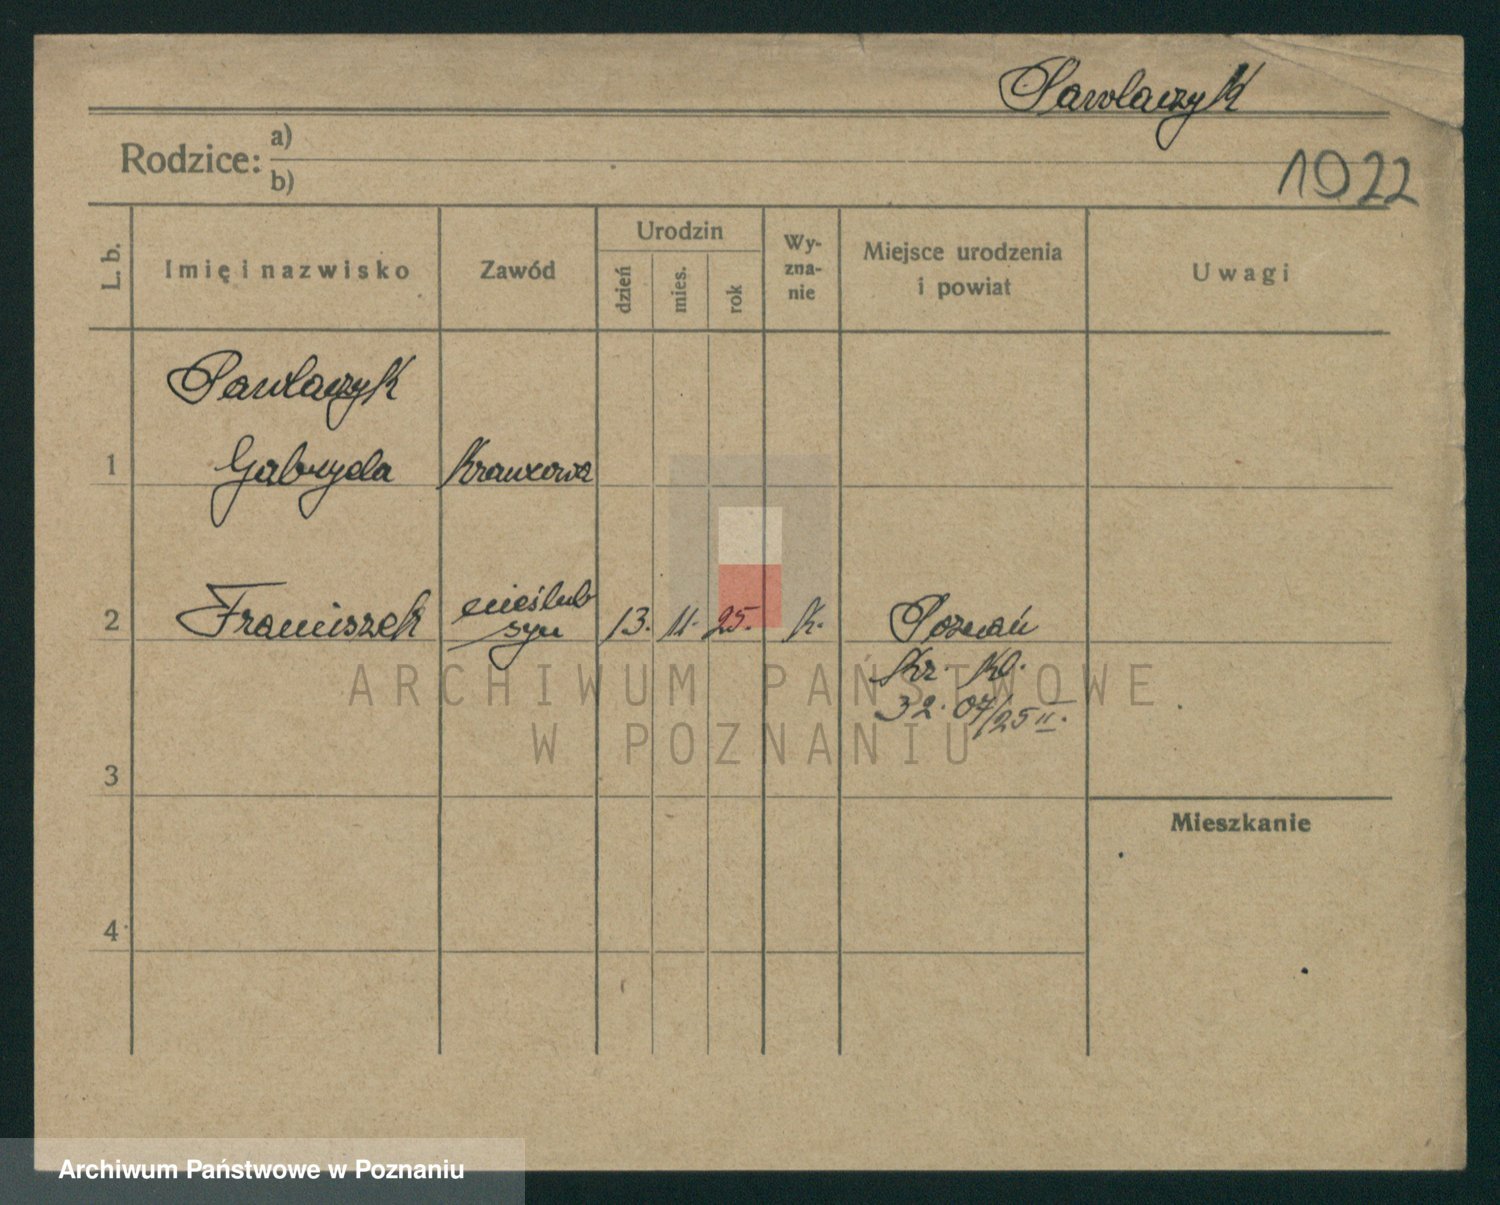 Pawlaczyk
Rodzice: a)
b)
1922
L. b.
Imię i nazwisko
Zawód
Urodzin
dzień
mies.
rok
Wy-
zna-
nie
Miejsce urodzenia
i powiat
Uwagi
Pawlaczyk
1 Gabryela Krawcowa
2 Franciszek nieślub syn 13. 11. 25. K. Poznań
Kr. Kl.
32.07/25 II.
3
Mieszkanie
4
ARCHIWUM PAŃSTWOWE
W POZNANIU
Archiwum Państwowe w Poznaniu